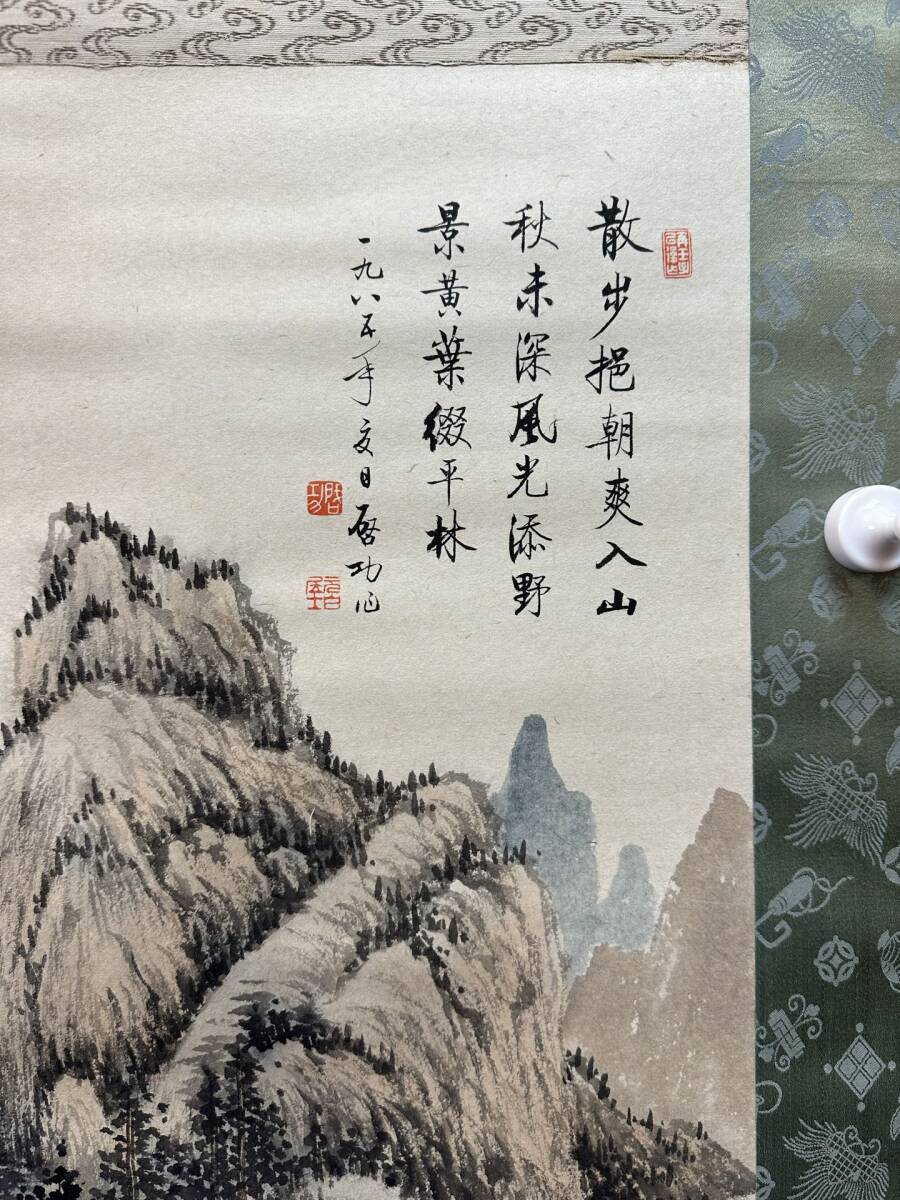 散步挹朝爽入山
秋未深風光添野
景黃葉綴平林
一九八五年夏日啓功作
啓功